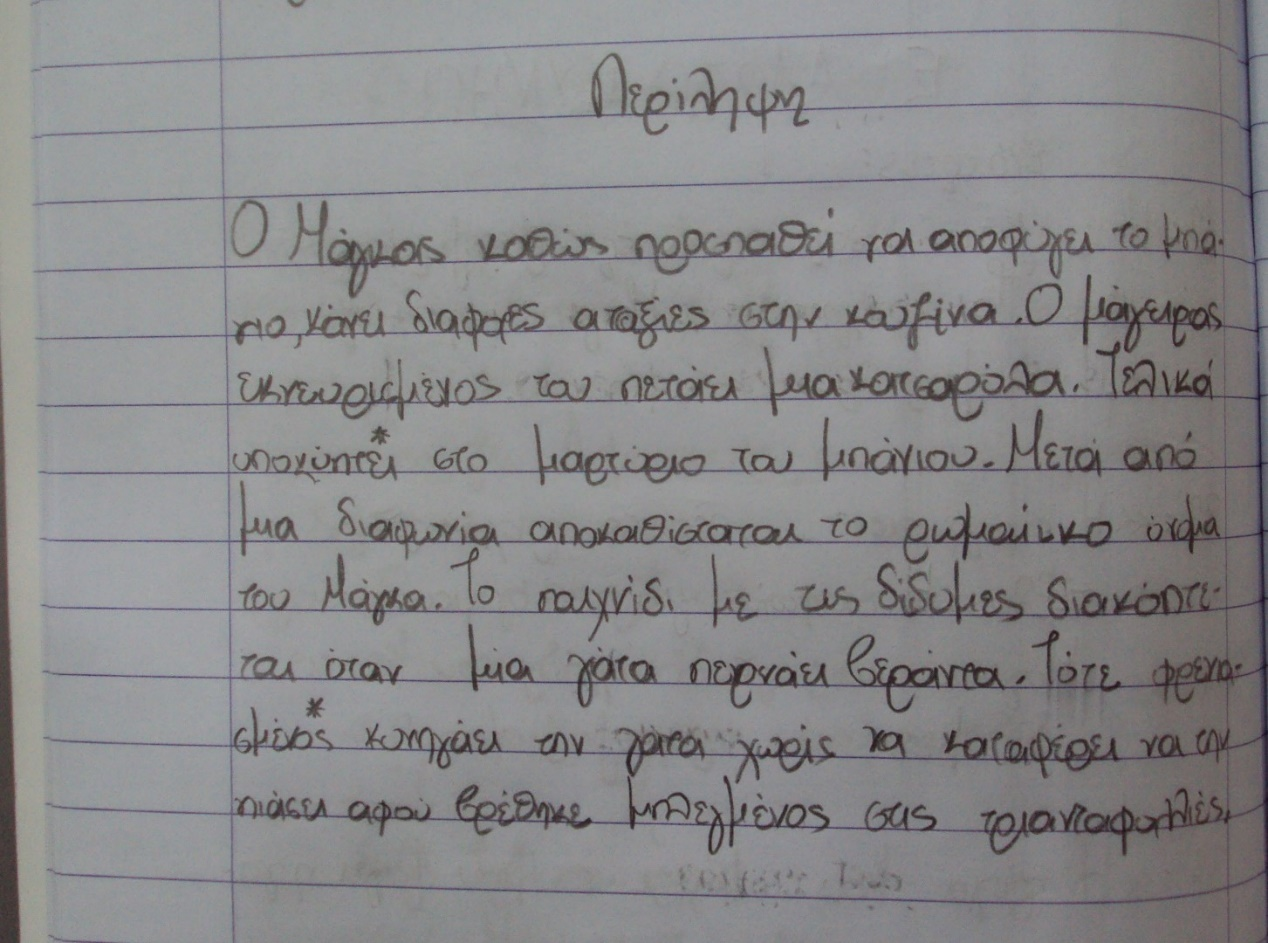 Περίληψη
Ο Μάγκας καθώς προσπαθεί να αποφύγει το μπά-
νιο, κάνει διαφορες αταξίες στην κουζίνα. Ο μάγειρας
εκνευρισμένος του πετάει μια κατσαρόλα. Τελικά
υποκύπτει* στο μαρτύριο του μπάνιου. Μετά από
μια διαφωνία αποκαθίσταται το ρωμαίικο όνομα
του Μάγκα. Το παιχνίδι με τις δίδυμες διακόπτε-
ται όταν μια γάτα περνάει βεράντα. Τότε φρενια-
σμένος* κυνηγάει την γάτα χωρίς να καταφέρει να την
πιάσει αφού βρέθηκε μπλεγμένος στις τριανταφυλλιές.